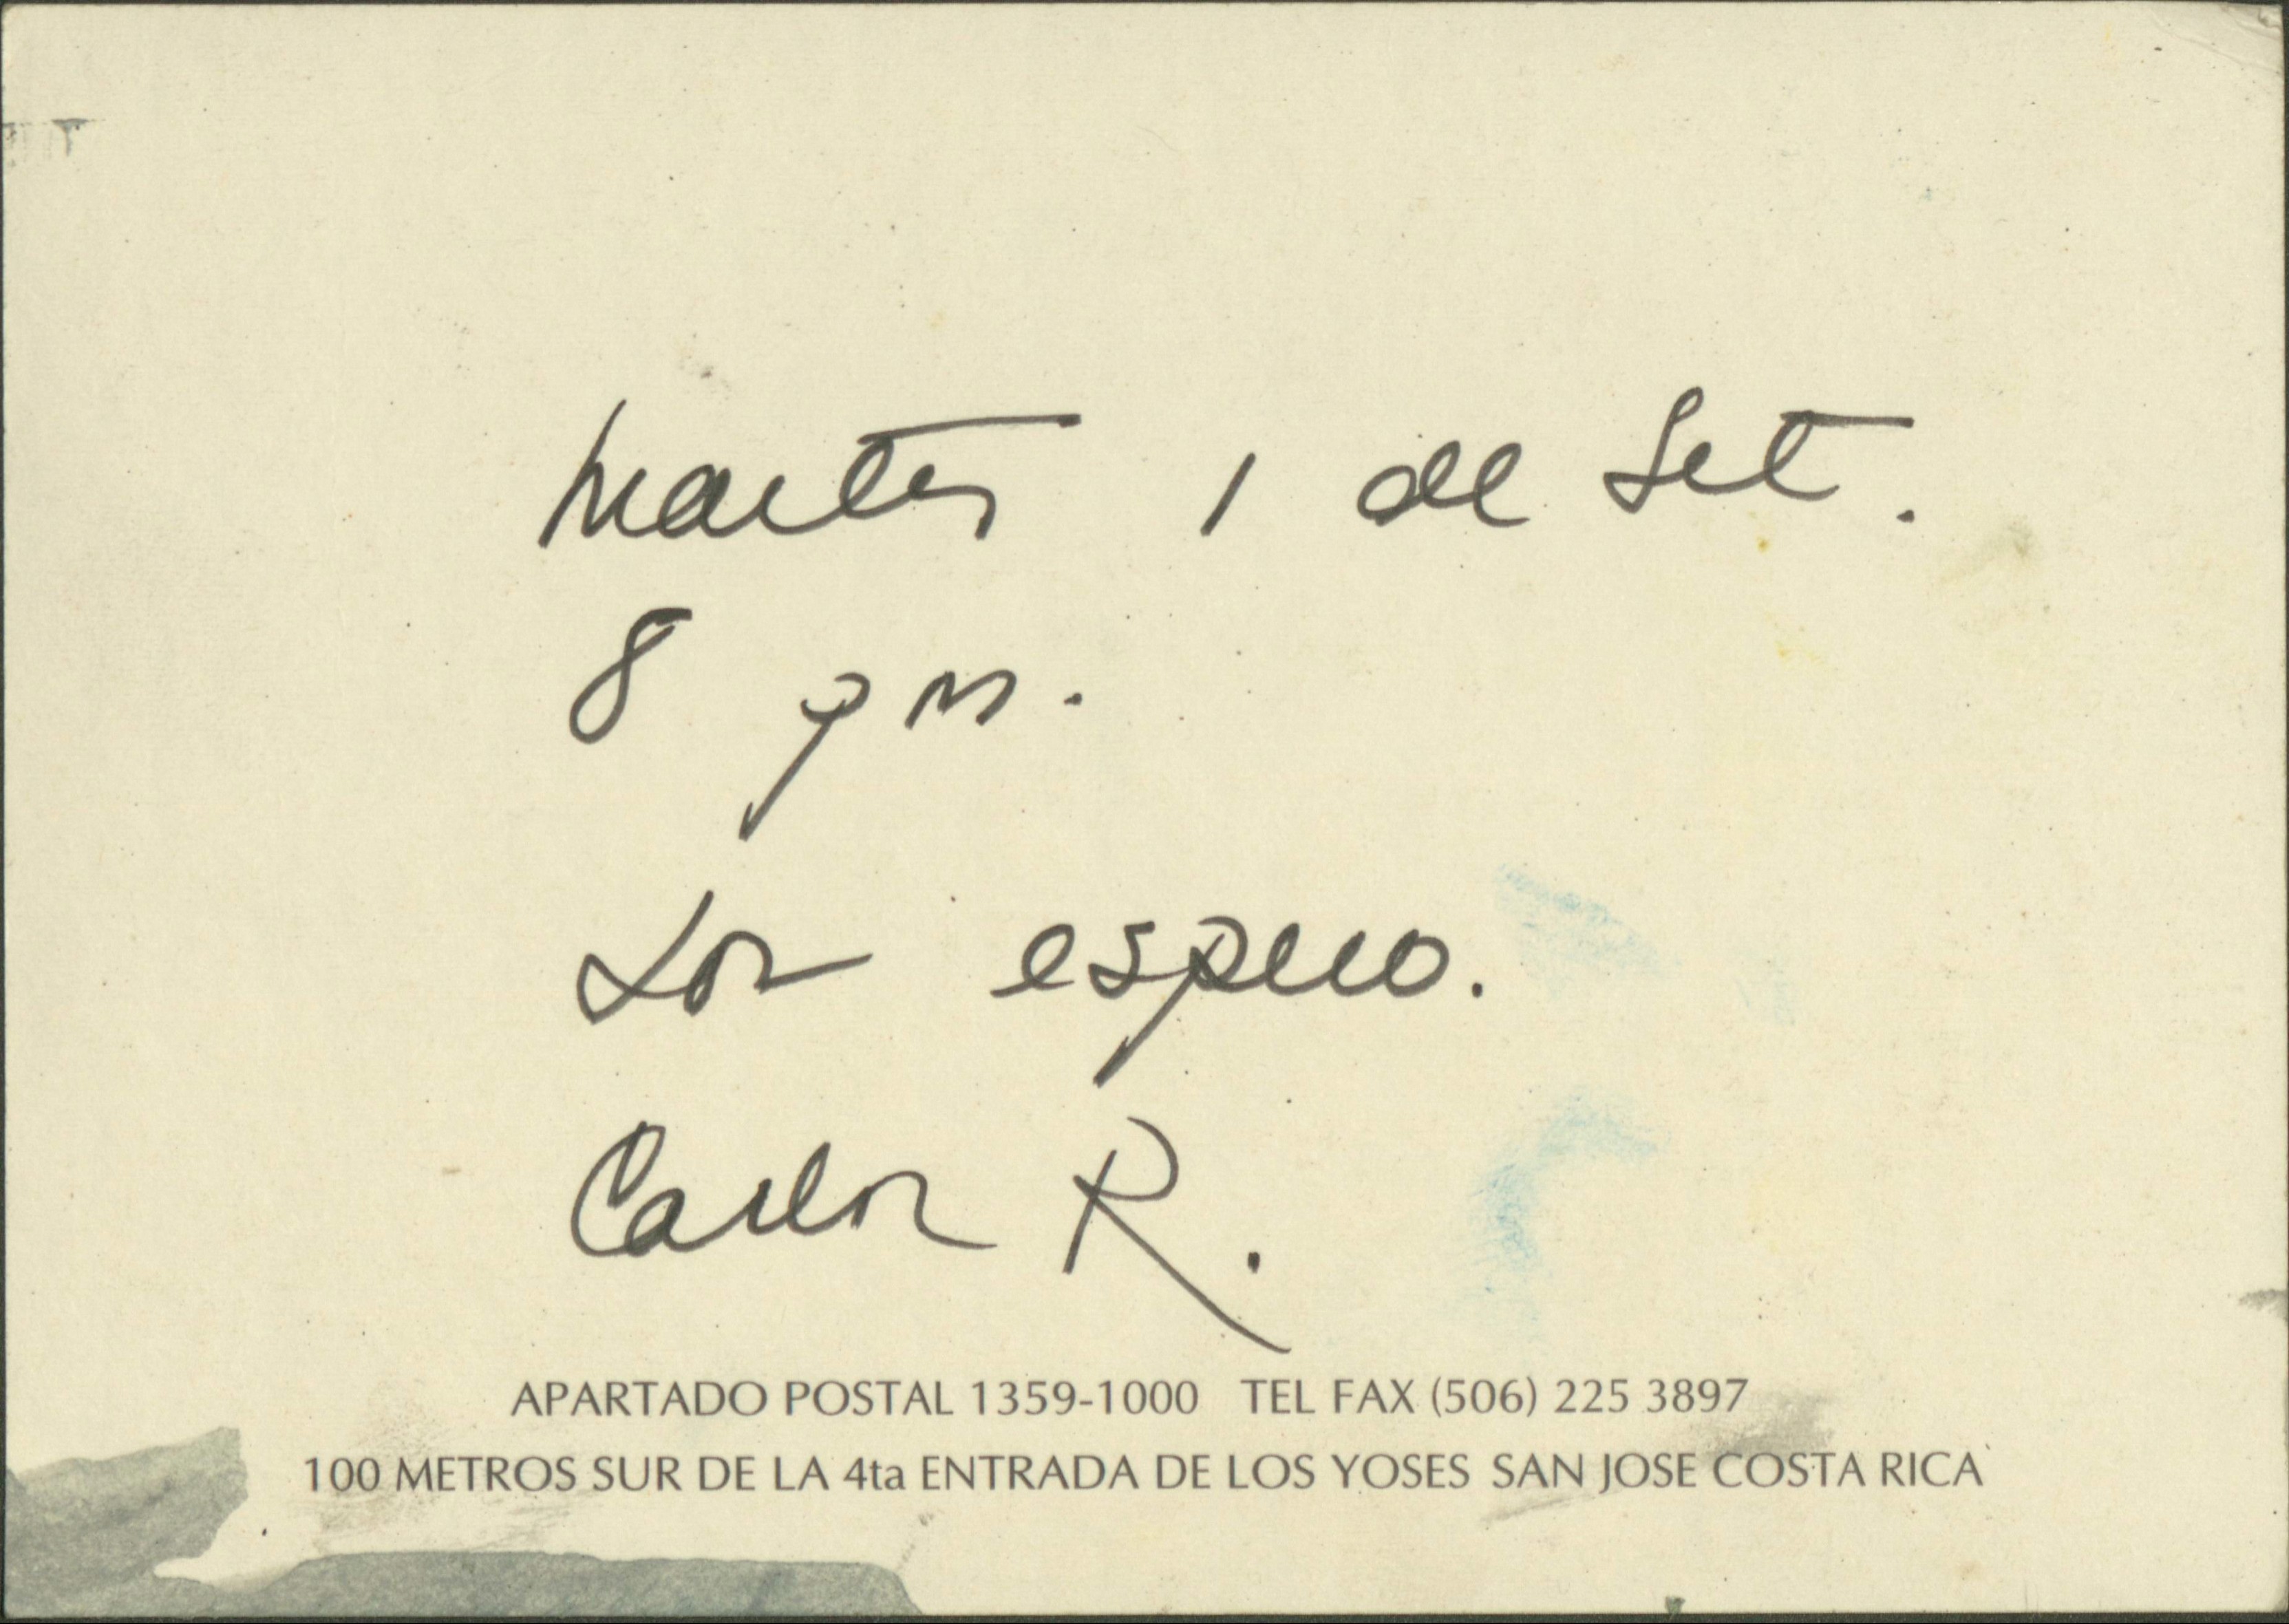 Martes 1 de Set.
8 pm.
Los espero.
Carlos R.
APARTADO POSTAL 1359-1000 TEL FAX (506) 225 3897
100 METROS SUR DE LA 4ta ENTRADA DE LOS YOSES SAN JOSE COSTA RICA